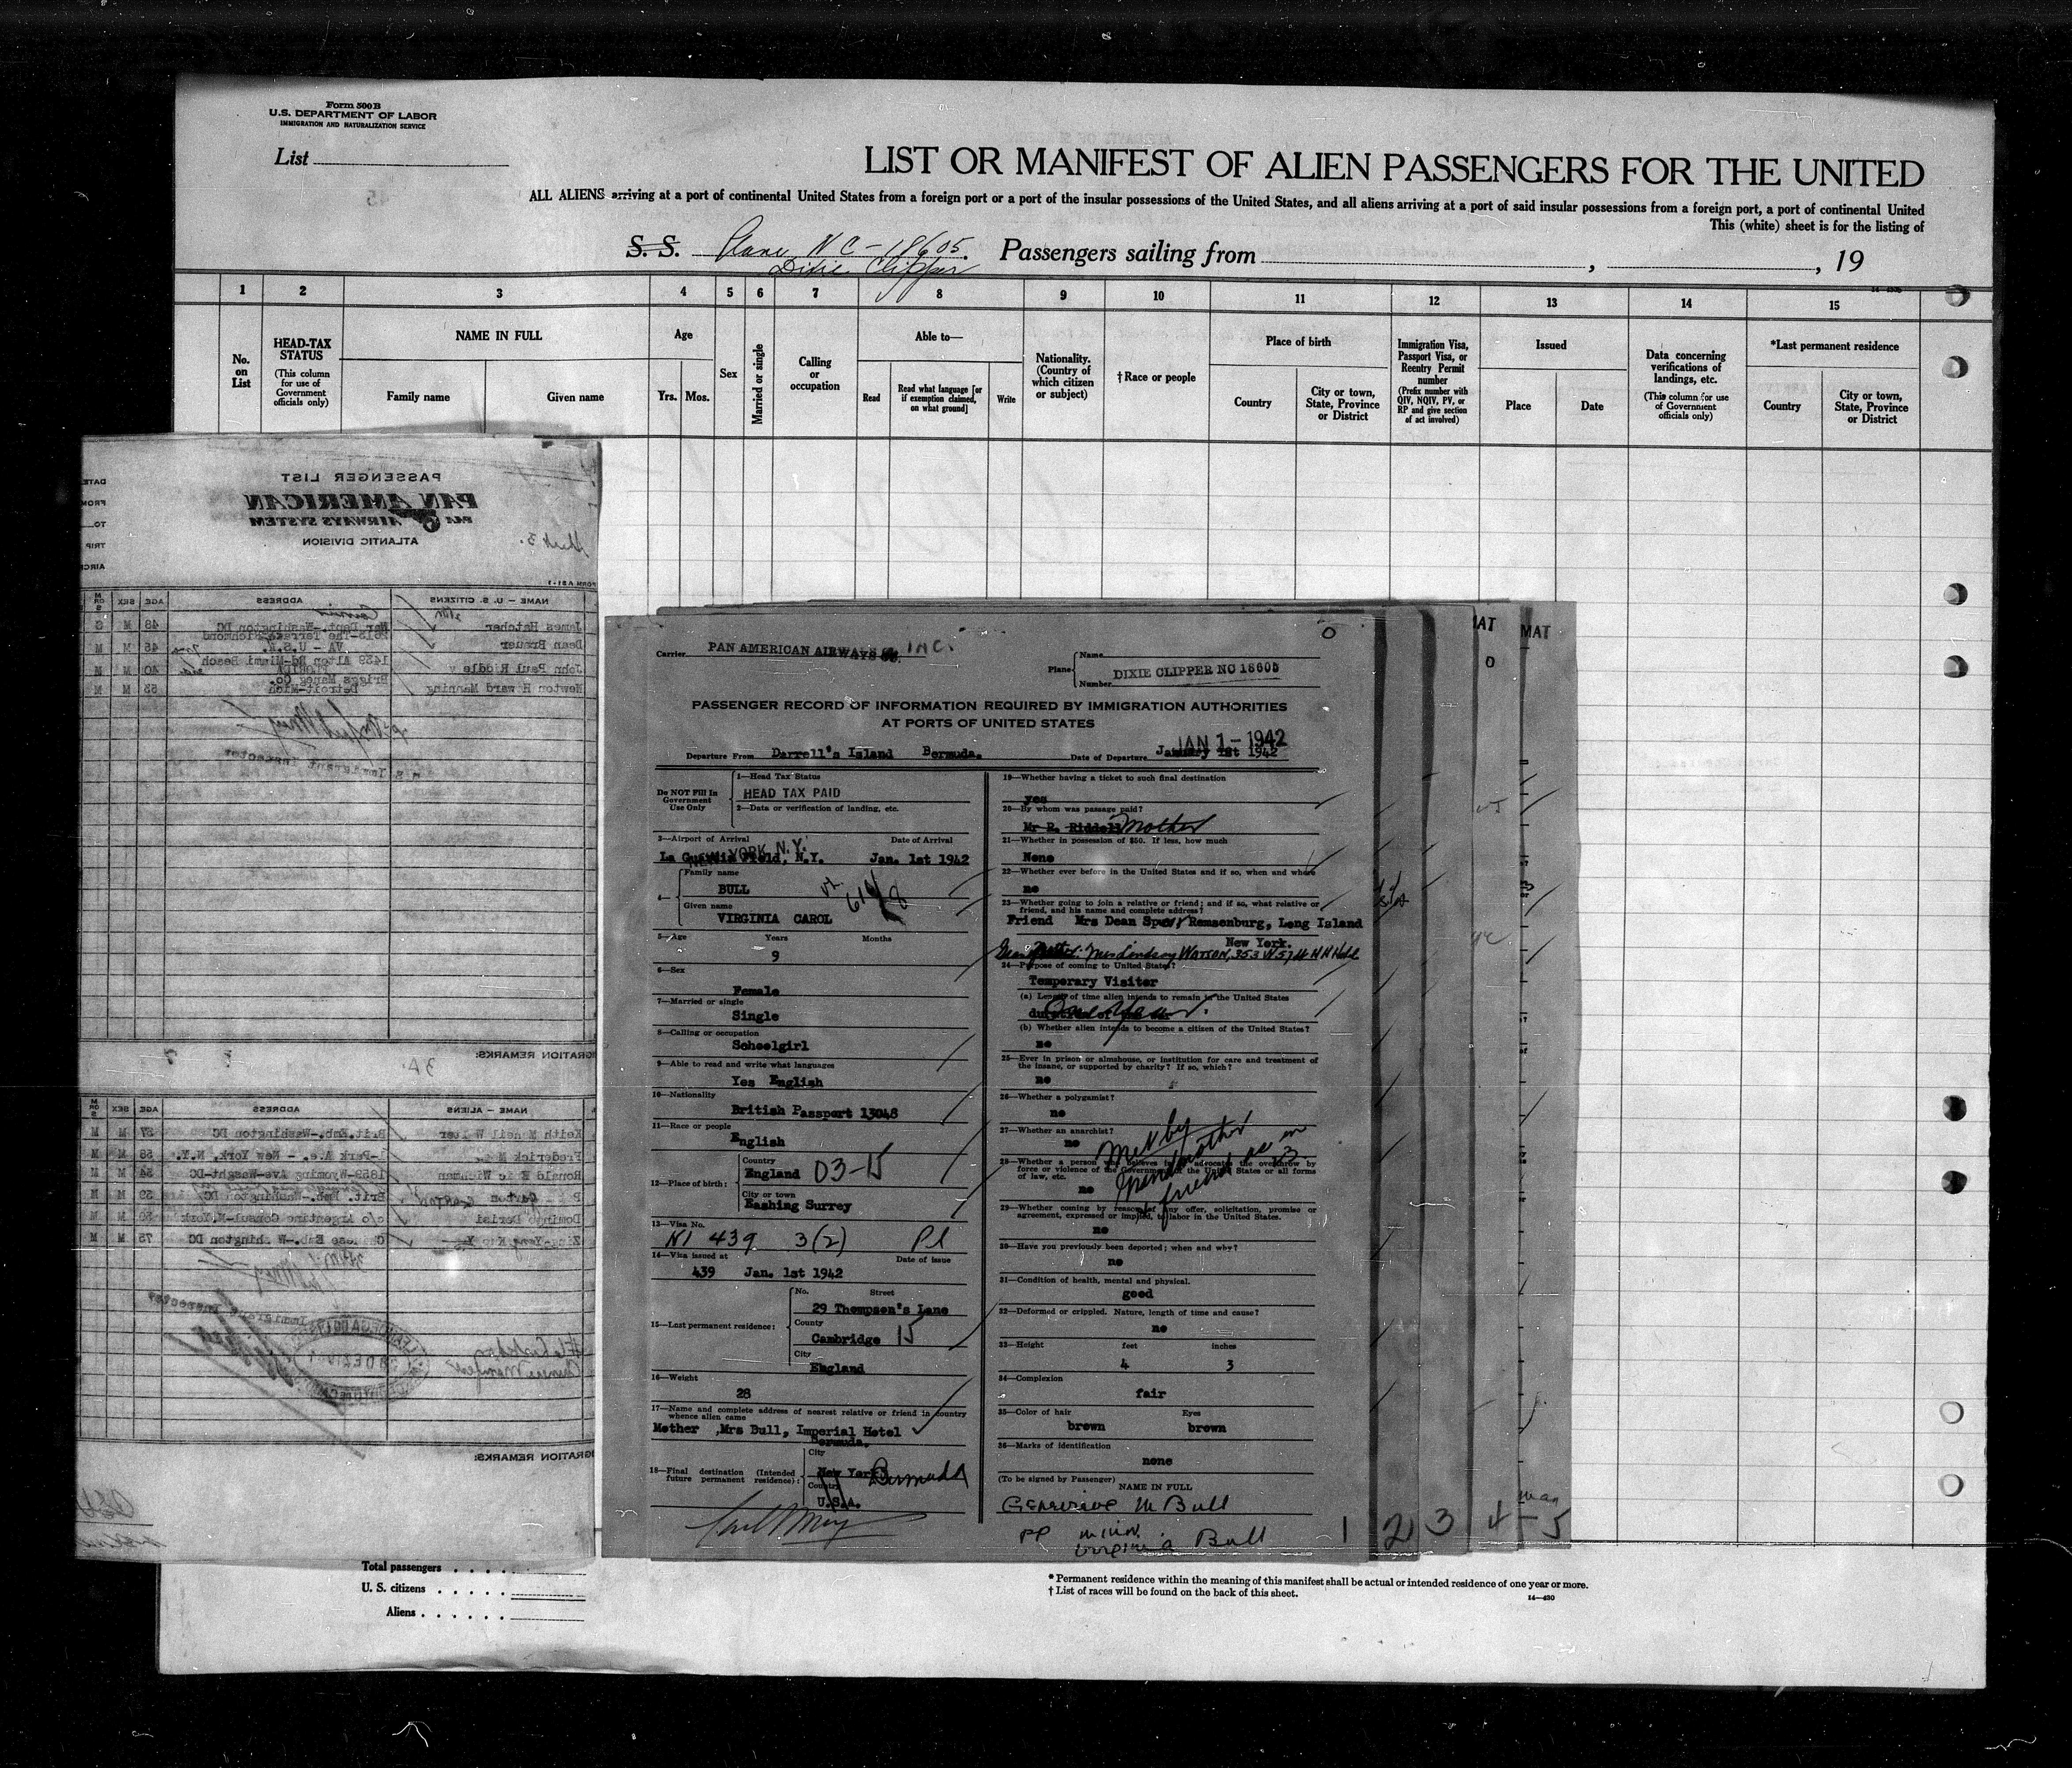 Form 500 B
U.S. DEPARTMENT OF LABOR
IMMIGRATION AND NATURALIZATION SERVICE
List
LIST OR MANIFEST OF ALIEN PASSENGERS FOR THE UNITED
ALL ALIENS arriving at a port of continental United States from a foreign port or a port of the insular possessions of the United States, and all aliens arriving at a port of said insular possessions from a foreign port, a port of continental United
This (white) sheet is for the listing of
S. S. Plane NC-18605. Passengers sailing from , , 19
Dixie Clipper
1 2 3 4 5 6 7 8 9 10 11 12 13 14 15
No. on List
HEAD-TAX STATUS
(This column for use of Government officials only)
NAME IN FULL
Family name Given name
Age
Yrs. Mos.
Sex
Married or single
Calling or occupation
Able to—
Read
Read what language [or if exemption claimed, on what ground]
Write
Nationality. (Country of which citizen or subject)
† Race or people
Place of birth
Country
City or town, State, Province or District
Immigration Visa, Passport Visa, or Reentry Permit number
(Prefix number with QIV, NQIV, PV, or RP and give section of act involved)
Issued
Place Date
Data concerning verifications of landings, etc.
(This column for use of Government officials only)
*Last permanent residence
Country
City or town, State, Province or District
PASSENGER LIST
PAN AMERICAN
PAA AIRWAYS SYSTEM
ATLANTIC DIVISION
DATE
FROM
TO
TRIP
AIRC
NAME — U. S. CITIZENS ADDRESS AGE SEX M OR S
James Hatcher War Dept.-Washington DC 48 M S
Dean Brauer 2613-The Terrace Richmond
VA - U.S.A. 45 M M
John Paul Riddle 1439 Alton Rd-Miami Beach
FLORIDA 40 M M
Newton Howard Manning Briggs Maneg Co.
Detroit-Mich 53 M M
U.S. Immigrant Inspector
GRATION REMARKS:
NAME — ALIENS ADDRESS AGE SEX M OR S
Brit.Emb.-Washington DC 37 M M
Frederick - New York, N.Y. M M
Ronald 1839-Wyoming Ave-Wasght-DC M M
Brit. Emb.-Washington DC 39 M M
Domingo Derisi c/o Argentine Consul-N.York M M
Emb.-Washington DC 75 M M
GRATION REMARKS:
Carrier PAN AMERICAN AIRWAYS INC.
Plane Name
Number DIXIE CLIPPER NC 18605
PASSENGER RECORD OF INFORMATION REQUIRED BY IMMIGRATION AUTHORITIES
AT PORTS OF UNITED STATES
JAN 1 - 1942
Departure From Darrell's Island Bermuda. Date of Departure January 1st 1942
Do NOT Fill In Government Use Only
1—Head Tax Status
HEAD TAX PAID
2—Data or verification of landing, etc.
3—Airport of Arrival Date of Arrival
NEW YORK N.Y.
La Guardia Field, N.Y. Jan. 1st 1942
4— Family name
BULL
Given name
VIRGINIA CAROL
5—Age Years Months
9
6—Sex
Female
7—Married or single
Single
8—Calling or occupation
Schoolgirl
9—Able to read and write what languages
Yes English
10—Nationality
British Passport 13048
11—Race or people
English
12—Place of birth:
Country
England 03-15
City or town
Eashing Surrey
13—Visa No.
NI 439 3(2) Pl
14—Visa issued at Date of issue
439 Jan. 1st 1942
15—Last permanent residence:
No. Street
29 Thompson's Lane
County
Cambridge 15
City
England
16—Weight
28
17—Name and complete address of nearest relative or friend in country whence alien came
Mother ,Mrs Bull, Imperial Hotel
Bermuda.
18—Final destination (Intended future permanent residence):
City
New York Bermuda
Country
U.S.A.
19—Whether having a ticket to such final destination
yes
20—By whom was passage paid?
Mr R. Riddell Mother
21—Whether in possession of $50. If less, how much
None
22—Whether ever before in the United States and if so, when and where
no
23—Whether going to join a relative or friend; and if so, what relative or friend, and his name and complete address?
Friend Mrs Dean Remsenburg, Long Island
New York.
Mrs Lindsay Watson, 353 W 57
24—Purpose of coming to United States?
Temporary Visitor
(a) Length of time alien intends to remain in the United States
One Year.
(b) Whether alien intends to become a citizen of the United States?
no
25—Ever in prison or almshouse, or institution for care and treatment of the insane, or supported by charity? If so, which?
no
26—Whether a polygamist?
no
27—Whether an anarchist?
no
Met by
Grandmother
friend as in
23.
28—Whether a person who believes in or advocates the overthrow by force or violence of the Government of the United States or all forms of law, etc.
no
29—Whether coming by reason of any offer, solicitation, promise or agreement, expressed or implied, to labor in the United States.
no
30—Have you previously been deported; when and why?
no
31—Condition of health, mental and physical.
good
32—Deformed or crippled. Nature, length of time and cause?
no
33—Height feet inches
4 3
34—Complexion
fair
35—Color of hair Eyes
brown brown
36—Marks of identification
none
(To be signed by Passenger)
NAME IN FULL
M Bull
PP minor
Virginia Bull
1 2 3 4 5
MAT
MAT
Total passengers
U. S. citizens
Aliens
* Permanent residence within the meaning of this manifest shall be actual or intended residence of one year or more.
† List of races will be found on the back of this sheet.
14—430